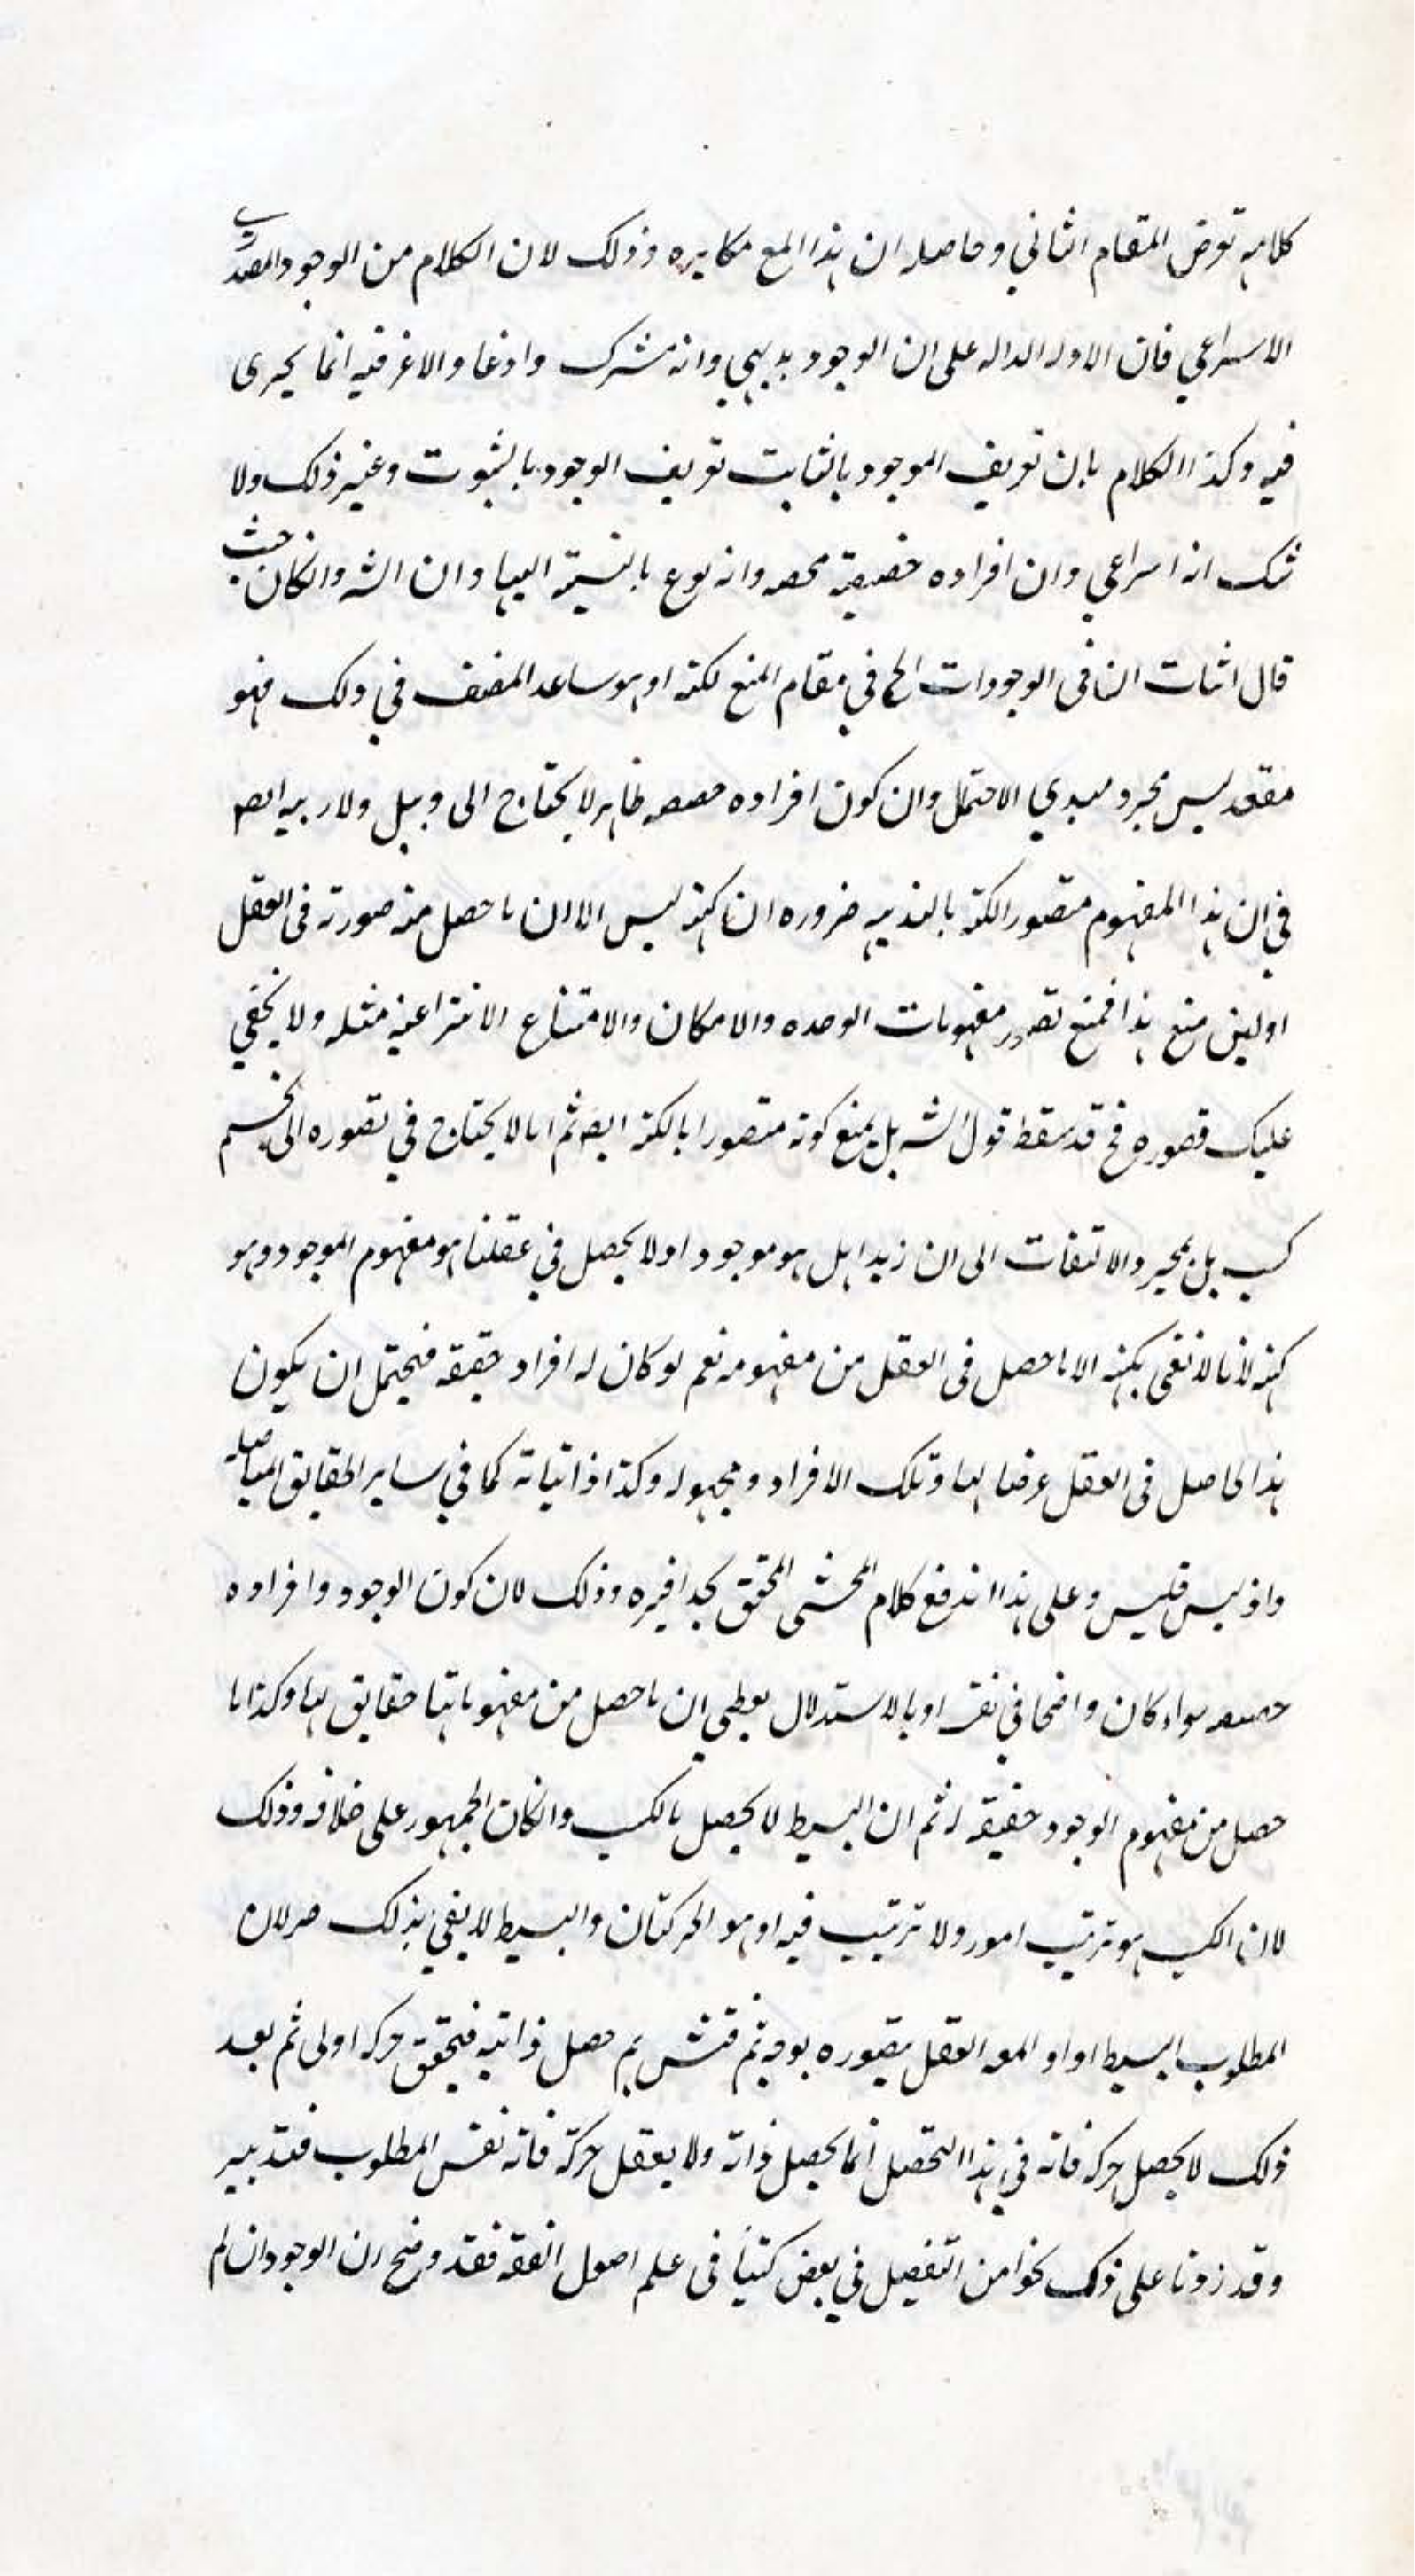 كلامه تعرض المقام الثاني وحاصله ان هذا المنع مكابره وذلك لان الكلام من الوجود المصدري
الاسراعي فان الادله الداله على ان الوجود بديهي وانه مشترك واذعا والاعرفيه انما يجرى
فيه وكذا الكلام بان تعريف الموجود بالثابت تعريف الوجود بالثبوت وغير ذلك ولا
شك انه اسراعي وان افراده حصصه وانه نوع بالنسبة اليها وان الشه وانكان حيث
قال اثبات النافى الوجودات الخ في مقام المنع لكنه او هو ساعد المصنف في ذلك فهو
معقد ليس مجرد مبدي الاحتمال وان كون افراده حصصه ظاهر لا يحتاج الى دليل ولا ريبه ايضه
في ان هذا المفهوم متصور الكنه بالبديهه ضروره ان كنهه ليس الا ان ما حصل منه صورته فى العقل
اولين منع هذا فمنع تصور مفهومات الوحده والامكان والامتناع الانتزاعيه مثله ولا يخفي
عليك قصوره فح قد سقط قول الشه بل يمنع كونه متصورا بالكنه ايضه ثم انا لا يحتاج في تصوره الى تجسم
كسب بل بمجرد الالتفات الى ان زيدا هل هو موجود اولا يحصل في عقلنا هو مفهوم الموجود وهو
كنهه لانا لا نعنى بكنهه الا ما حصل فى العقل من مفهومه نعم لو كان له افراد حقيقه فيحتمل ان يكون
هذا الحاصل فى العقل عرضا لها وتلك الافراد مجهوله وكذا ذاتياته كما في ساير الحقايق المتاصله
واذ ليس فليس وعلى هذا اندفع كلام المحشى المحقق بحذافيره وذلك لان كون الوجود وافراده
حصصه سواء كان واضحا في نفسه او بالاستدلال يعطي ان ما حصل من مفهوماتها حقايق لها وكذا ما
حصل من مفهوم الوجود حقيقه له ثم ان البسيط لا يحصل بالكسب وانكان الجمهور على خلافه وذلك
لان الكسب هو ترتيب امور ولا ترتيب فيه او هو الحركتان والبسيط لا يفي بذلك ضر لان
المطلوب البسيط اذا اراد العقل تصوره بوجه ثم فتش ثم حصل ذاتيه فيتحقق حركه اولى ثم بعد
ذلك لا يحصل حركه فانه في هذا التحصل انما يحصل ذاته ولا يعقل حركة فانه نفس المطلوب فتدبير
وقد زدنا على ذلك نحوا من التفصيل في بعض كتبنا فى علم اصول الفقه فقد وضح ان الوجود ان لم